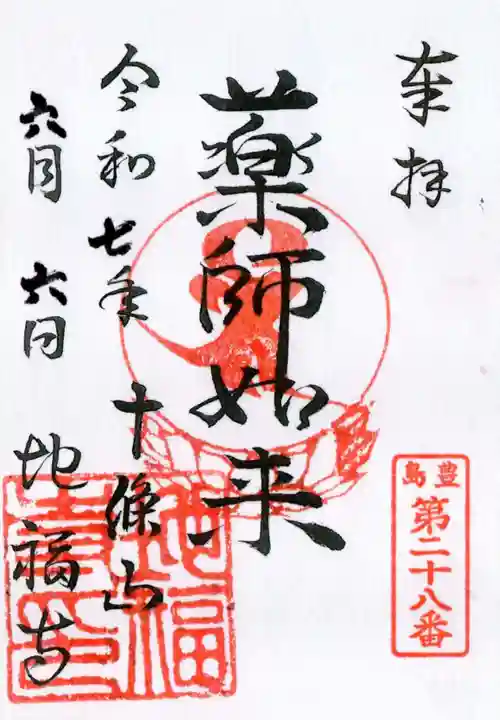 奉拝
豊島
第二十八番
薬師如来
令和七年
六月六日
十條山
地福寺
地福寺印